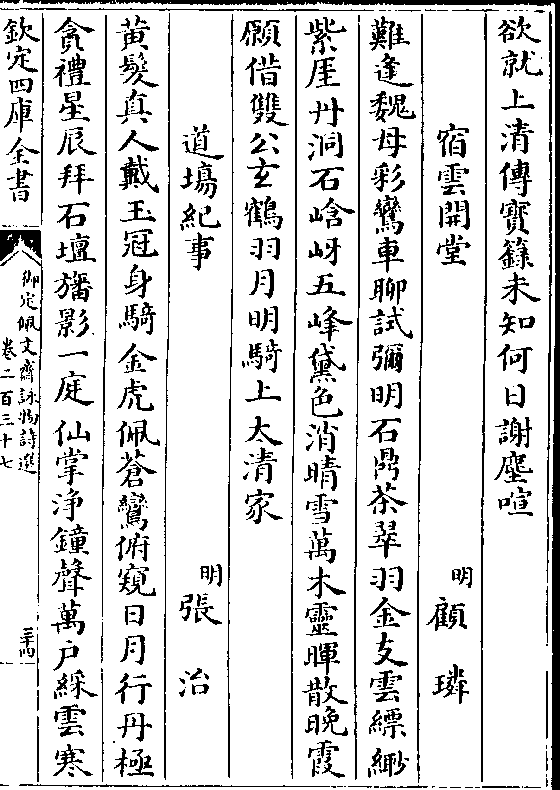 欲就上清傳寳籙未知何日謝塵喧
宿雲開堂
明 顧璘
難逢魏母彩鸞車聊試彌明石鼎茶翠羽金支雲縹緲
紫厓丹洞石㟏岈五峰黛色消晴雪萬木靈暉散晚霞
願借雙公玄鶴羽月明騎上太清家
道塲紀事
明 張治
黄髮真人戴玉冠身騎金虎佩蒼鸞俯窺日月行丹極
貪禮星辰拜石壇旛影一庭仙掌净鐘聲萬户綵雲寒
欽定四庫全書
御定佩文齋詠物詩選
卷二百三十七
三十四